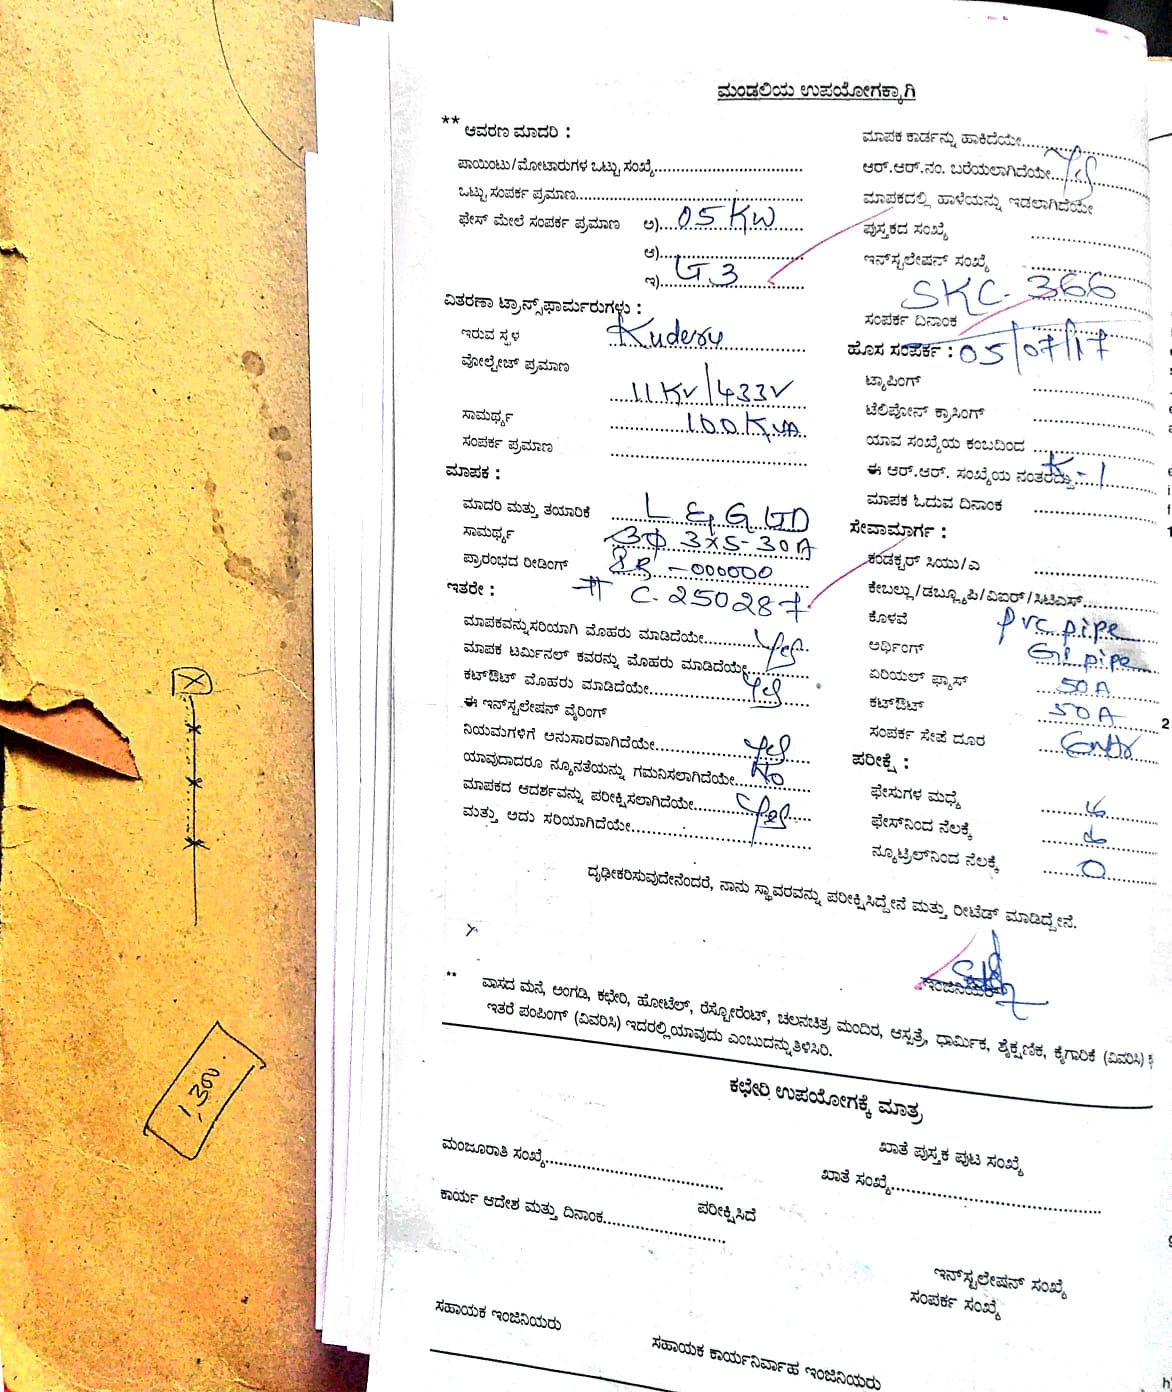 ಮಂಡಲಿಯ ಉಪಯೋಗಕ್ಕಾಗಿ
** ಆವರಣ ಮಾದರಿ :
ಪಾಯಿಂಟು/ಮೋಟಾರುಗಳ ಒಟ್ಟು ಸಂಖ್ಯೆ
ಒಟ್ಟು ಸಂಪರ್ಕ ಪ್ರಮಾಣ
ಫೇಸ್ ಮೇಲೆ ಸಂಪರ್ಕ ಪ್ರಮಾಣ ಅ) 05 KW
ಆ)
ಇ) G3
ವಿತರಣಾ ಟ್ರಾನ್ಸ್‌ಫಾರ್ಮರುಗಳು :
ಇರುವ ಸ್ಥಳ
ವೋಲ್ಟೇಜ್ ಪ್ರಮಾಣ 11KV/433V
ಸಾಮರ್ಥ್ಯ 100 KVA
ಸಂಪರ್ಕ ಪ್ರಮಾಣ
ಮಾಪಕ :
ಮಾದರಿ ಮತ್ತು ತಯಾರಿಕೆ L & G
ಸಾಮರ್ಥ್ಯ 3Φ 3x5-30A
ಪ್ರಾರಂಭದ ರೀಡಿಂಗ್ -000000
ಇತರೇ : # C-250287
ಮಾಪಕವನ್ನು ಸರಿಯಾಗಿ ಮೊಹರು ಮಾಡಿದೆಯೇ Yes
ಮಾಪಕ ಟರ್ಮಿನಲ್ ಕವರನ್ನು ಮೊಹರು ಮಾಡಿದೆಯೇ
ಕಟ್‌ಔಟ್ ಮೊಹರು ಮಾಡಿದೆಯೇ Yes
ಈ ಇನ್‌ಸ್ಟಲೇಷನ್ ವೈರಿಂಗ್
ನಿಯಮಗಳಿಗೆ ಅನುಸಾರವಾಗಿದೆಯೇ Yes
ಯಾವುದಾದರೂ ನ್ಯೂನತೆಯನ್ನು ಗಮನಿಸಲಾಗಿದೆಯೇ No
ಮಾಪಕದ ಆದರ್ಶವನ್ನು ಪರೀಕ್ಷಿಸಲಾಗಿದೆಯೇ Yes
ಮತ್ತು ಅದು ಸರಿಯಾಗಿದೆಯೇ
ಮಾಪಕ ಕಾರ್ಡನ್ನು ಹಾಕಿದೆಯೇ
ಆರ್.ಆರ್.ನಂ. ಬರೆಯಲಾಗಿದೆಯೇ Yes
ಮಾಪಕದಲ್ಲಿ ಹಾಳೆಯನ್ನು ಇಡಲಾಗಿದೆಯೇ
ಪುಸ್ತಕದ ಸಂಖ್ಯೆ
ಇನ್‌ಸ್ಟಲೇಷನ್ ಸಂಖ್ಯೆ
SKC-366
ಸಂಪರ್ಕ ದಿನಾಂಕ
ಹೊಸ ಸಂಪರ್ಕ : 05/07/17
ಟ್ಯಾಪಿಂಗ್
ಟೆಲಿಪೋನ್ ಕ್ರಾಸಿಂಗ್
ಯಾವ ಸಂಖ್ಯೆಯ ಕಂಬದಿಂದ
ಈ ಆರ್.ಆರ್. ಸಂಖ್ಯೆಯ ನಂತರದ್ದು K-1
ಮಾಪಕ ಓದುವ ದಿನಾಂಕ
ಸೇವಾಮಾರ್ಗ :
ಕಂಡಕ್ಟರ್ ಸಿಯು/ಎ
ಕೇಬಲ್ಲು/ಡಬ್ಲ್ಯೂಪಿ/ವಿಐರ್/ಸಿಟಿಎಸ್
ಕೊಳವೆ PVC pipe
ಅರ್ಥಿಂಗ್ GI pipe
ಏರಿಯಲ್ ಫ್ಯಾಸ್ 50A
ಕಟ್‌ಔಟ್ 50A
ಸಂಪರ್ಕ ಸೇಪೆ ದೂರ
ಪರೀಕ್ಷೆ :
ಫೇಸುಗಳ ಮಧ್ಯೆ
ಫೇಸ್‌ನಿಂದ ನೆಲಕ್ಕೆ
ನ್ಯೂಟ್ರಲ್‌ನಿಂದ ನೆಲಕ್ಕೆ 0
ದೃಢೀಕರಿಸುವುದೇನೆಂದರೆ, ನಾನು ಸ್ಥಾವರವನ್ನು ಪರೀಕ್ಷಿಸಿದ್ದೇನೆ ಮತ್ತು ರೀಟೆಡ್ ಮಾಡಿದ್ದೇನೆ.
ಇಂಜಿನಿಯರ್
** ವಾಸದ ಮನೆ, ಅಂಗಡಿ, ಕಛೇರಿ, ಹೋಟೆಲ್, ರೆಸ್ಟೋರೆಂಟ್, ಚಲನಚಿತ್ರ ಮಂದಿರ, ಆಸ್ಪತ್ರೆ, ಧಾರ್ಮಿಕ, ಶೈಕ್ಷಣಿಕ, ಕೈಗಾರಿಕೆ (ವಿವರಿಸಿ)
ಇತರೆ ಪಂಪಿಂಗ್ (ವಿವರಿಸಿ) ಇದರಲ್ಲಿ ಯಾವುದು ಎಂಬುದನ್ನು ತಿಳಿಸಿರಿ.
ಕಛೇರಿ ಉಪಯೋಗಕ್ಕೆ ಮಾತ್ರ
ಮಂಜೂರಾತಿ ಸಂಖ್ಯೆ
ಖಾತೆ ಪುಸ್ತಕ ಪುಟ ಸಂಖ್ಯೆ
ಖಾತೆ ಸಂಖ್ಯೆ
ಕಾರ್ಯ ಆದೇಶ ಮತ್ತು ದಿನಾಂಕ
ಪರೀಕ್ಷಿಸಿದೆ
ಇನ್‌ಸ್ಟಲೇಷನ್ ಸಂಖ್ಯೆ
ಸಂಪರ್ಕ ಸಂಖ್ಯೆ
ಸಹಾಯಕ ಇಂಜಿನಿಯರು
ಸಹಾಯಕ ಕಾರ್ಯನಿರ್ವಾಹ ಇಂಜಿನಿಯರು
1,300